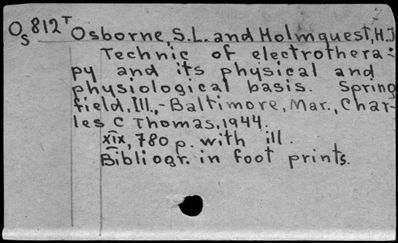 Os812T Osborne, S.L. and Holmquest, H.J
Technic of electrothera-
py and its physical and
physiological basis. Spring
field, Ill., - Baltimore, Mar., Char-
les C Thomas, 1944.
xix, 780 p. with ill.
Bibliogr. in foot prints.